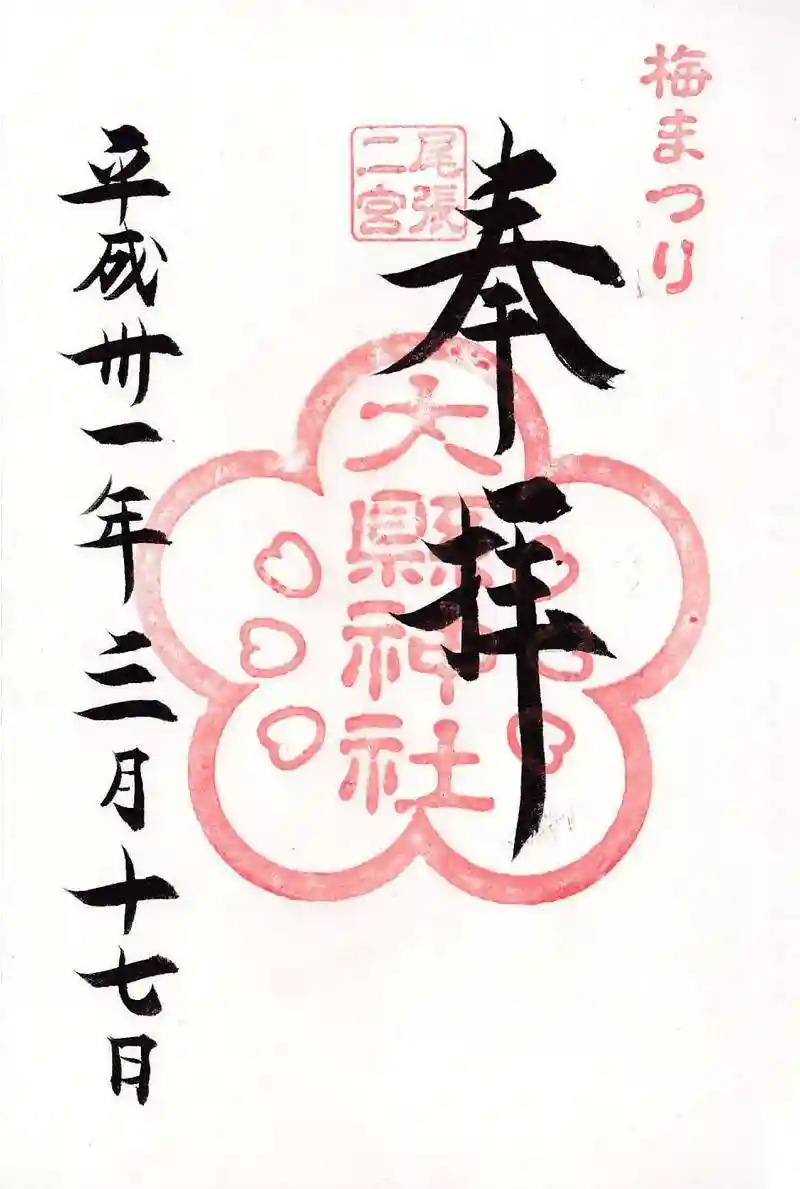 梅まつり
奉拝
尾張
二宮
大縣神社
平成卅一年三月十七日